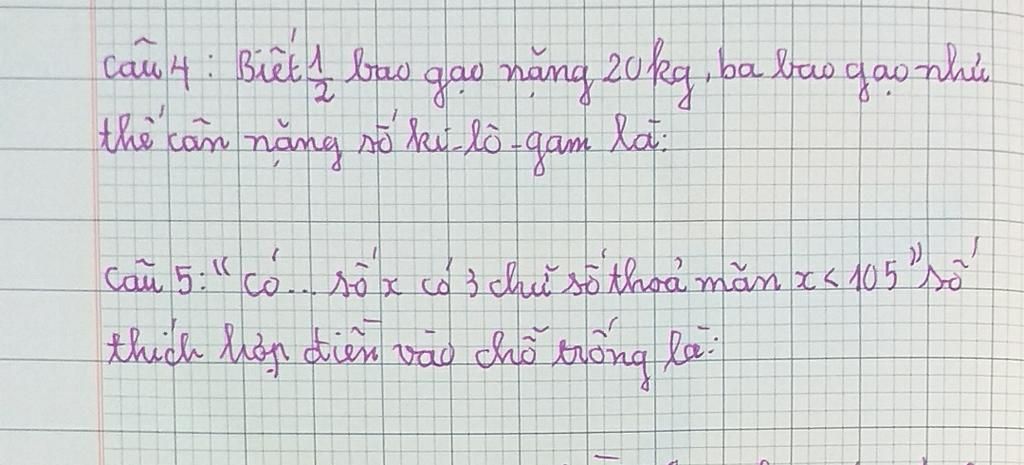 Câu 4: Biết 1/2 bao gạo nặng 20kg, ba bao gạo như
thế cân nặng số ki-lô-gam là:
Câu 5: "Có... số x có 3 chữ số thoả mãn x < 105" số
thích hợp điền vào chỗ trống là: